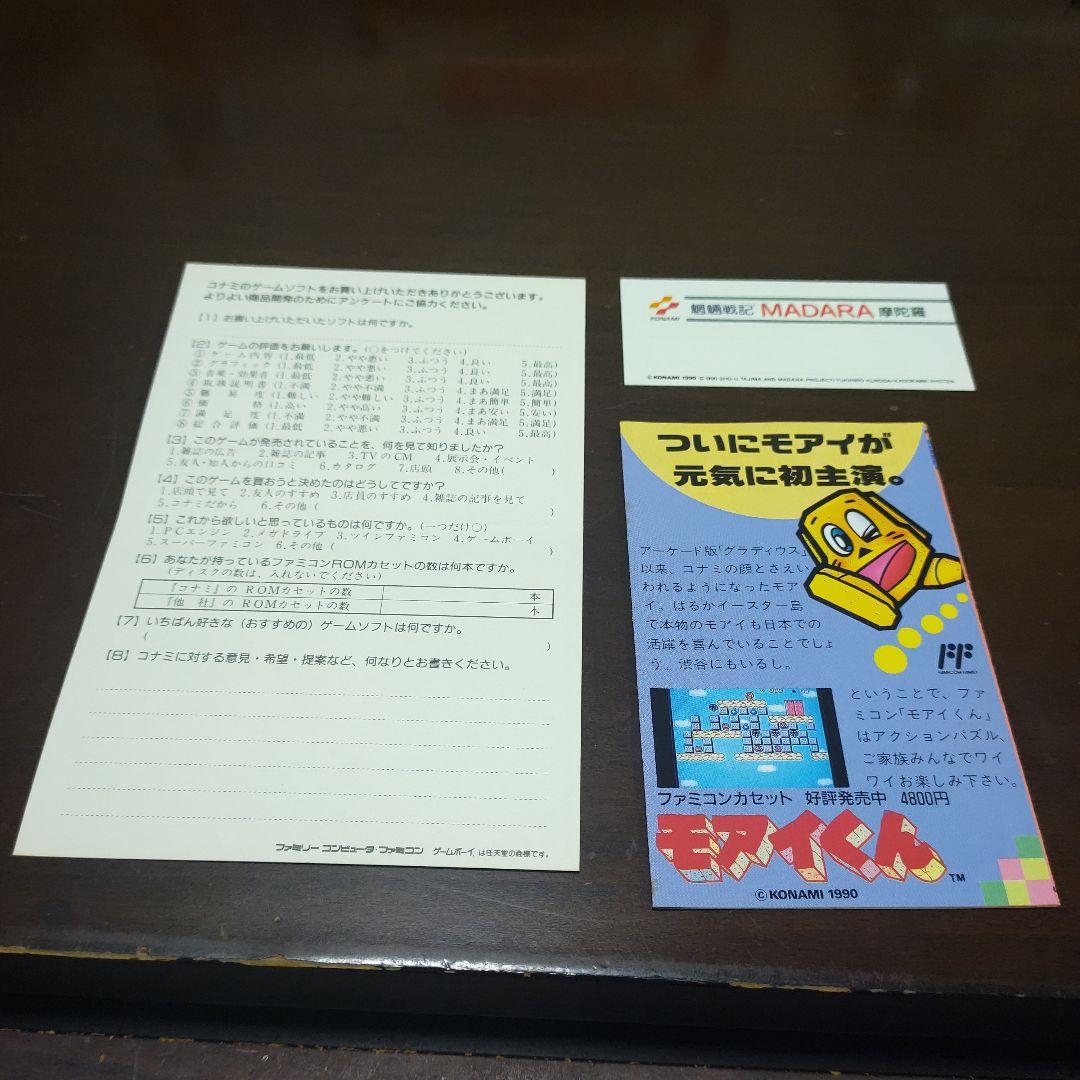 コナミのゲームソフトをお買い上げいただきありがとうございます。
よりよい商品開発のためにアンケートにご協力ください。
【1】お買い上げいただいたソフトは何ですか。
【2】ゲームの評価をお願いします。(○をつけてください)
① ゲーム内容 (1.最低 2.やや悪い 3.ふつう 4.良い 5.最高)
② グラフィック (1.最低 2.やや悪い 3.ふつう 4.良い 5.最高)
③ 音楽・効果音 (1.最低 2.やや悪い 3.ふつう 4.良い 5.最高)
④ 取扱説明書 (1.不満 2.やや不満 3.ふつう 4.まあ満足 5.満足)
⑤ 難易度 (1.難しい 2.やや難しい 3.ふつう 4.まあ簡単 5.簡単)
⑥ 価格 (1.高い 2.やや高い 3.ふつう 4.まあ安い 5.安い)
⑦ 満足度 (1.不満 2.やや不満 3.ふつう 4.まあ満足 5.満足)
⑧ 総合評価 (1.最低 2.やや悪い 3.ふつう 4.良い 5.最高)
【3】このゲームが発売されていることを、何を見て知りましたか?
1.雑誌の広告 2.雑誌の記事 3.TVのCM 4.展示会・イベント
5.友人・知人からの口コミ 6.カタログ 7.店頭 8.その他( )
【4】このゲームを買おうと決めたのはどうしてですか?
1.店頭で見て 2.友人のすすめ 3.店員のすすめ 4.雑誌の記事を見て
5.コナミだから 6.その他( )
【5】これから欲しいと思っているものは何ですか。(一つだけ○)
1.PCエンジン 2.メガドライブ 3.ツインファミコン 4.ゲームボーイ
5.スーパーファミコン 6.その他( )
【6】あなたが持っているファミコンROMカセットの数は何本ですか。
(ディスクの数は、入れないでください)
『コナミ』の ROMカセットの数 本
『他 社』の ROMカセットの数 本
【7】いちばん好きな(おすすめの)ゲームソフトは何ですか。
( )
【8】コナミに対する意見・希望・提案など、何なりとお書きください。
ファミリー コンピュータ・ファミコン ゲームボーイ は任天堂の商標です。
KONAMI
魍魎戦記 MADARA 摩陀羅
©KONAMI 1990 © 1990 SHO-U TAJIMA AND MADARA PROJECT/YUKIHIRO KURODA/KADOKAWA SHOTEN
ついにモアイが
元気に初主演。
アーケード版「グラディウス」
以来、コナミの顔とさえい
われるようになったモア
イ。はるかイースター島
で本物のモアイも日本での
活躍を喜んでいることでしょ
う。渋谷にもいるし。
FAMICOM FAMILY
ということで、ファ
ミコン「モアイくん」
はアクションパズル、
ご家族みんなでワイ
ワイお楽しみ下さい。
ファミコンカセット 好評発売中 4800円
モアイくん™
©KONAMI 1990